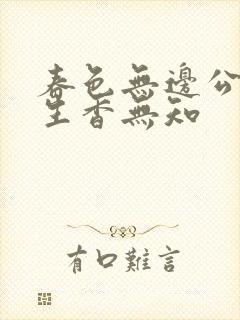 春色無邊公
生香無知
有口難言